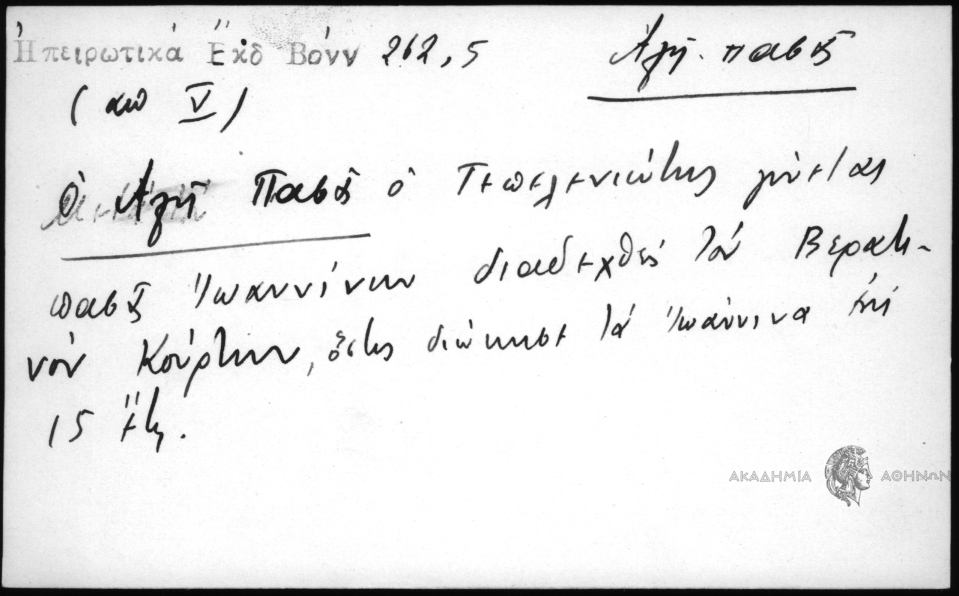 Ἠπειρωτικά Ἔκδ Βόνν 262,5 Ἀλῆ πασᾶ
(από V)
Ὁ Ἀλῆ Πασᾶς ὁ Τεπελενιώτης γίνεται
πασᾶς Ἰωαννίνων διαδεχθείς τόν Βερατι-
νόν Κούρτην, ὅστις διώκησε τά Ἰωάννινα ἐπί
15 ἔτη.
ΑΚΑΔΗΜΙΑ ΑΘΗΝΩΝ